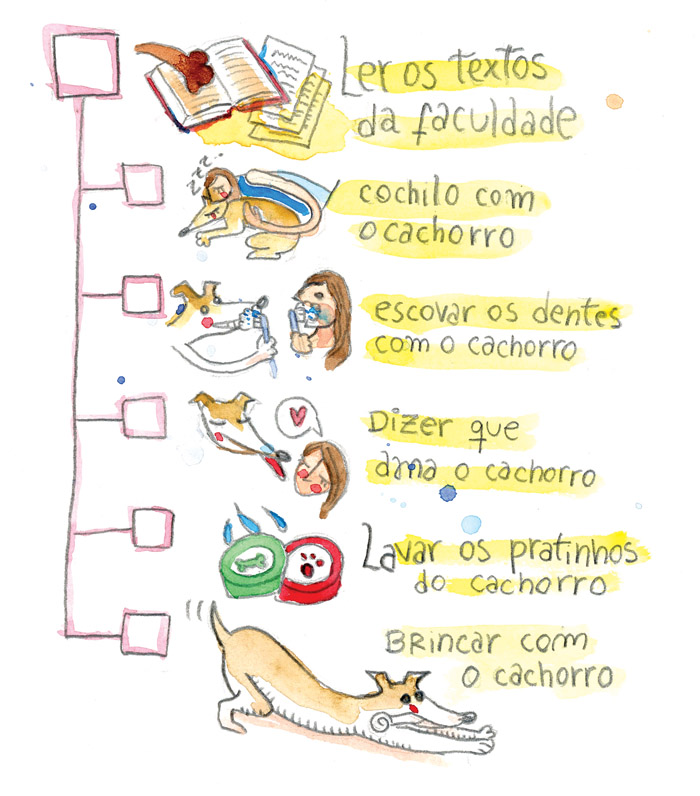 Ler os textos
da faculdade
zzz..
cochilo com
o cachorro
escovar os dentes
com o cachorro
Dizer que
ama o cachorro
Lavar os pratinhos
do cachorro
Brincar com
o cachorro